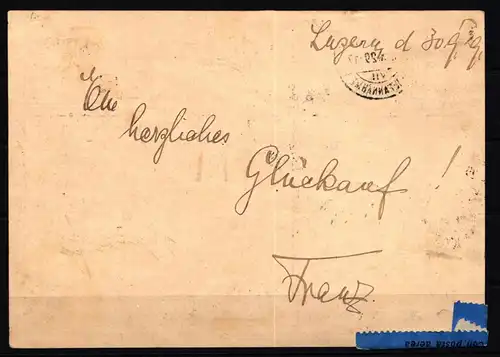 Luzern, d 30.
Ein
herzliches
Glückauf!
Franz
con posta aerea